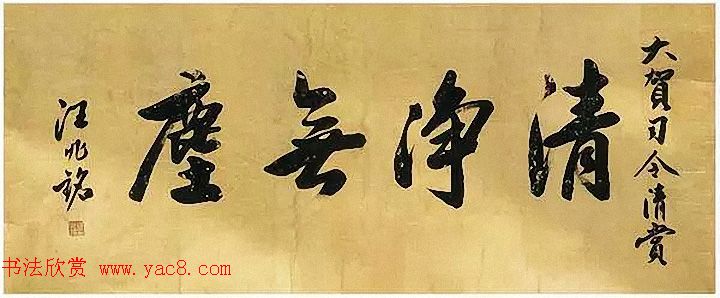 大賀司令清賞
清淨無塵
汪兆銘
书法欣赏 www.yac8.com